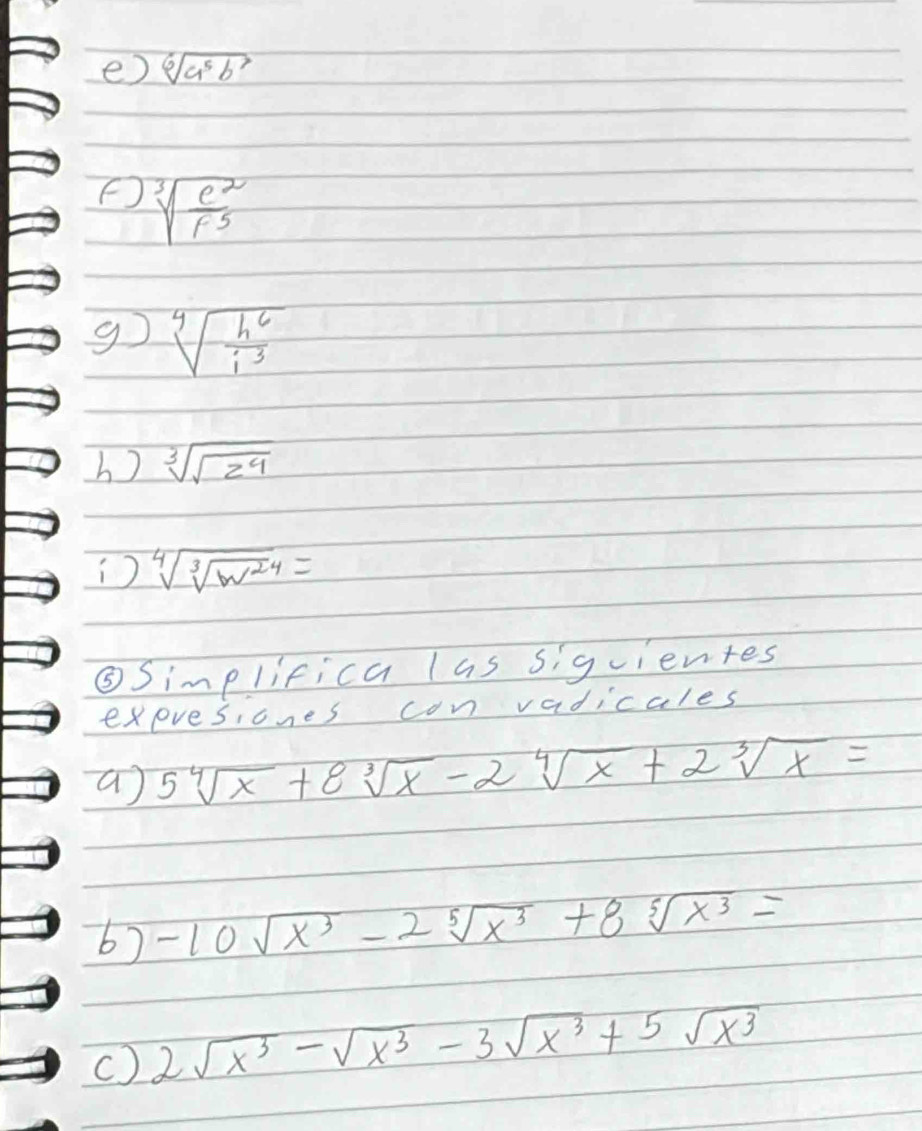 e) ⁶√(a⁵b⁷)
f) ³√(e²/f⁵)
g) ⁴√(h⁶/i³)
h) ³√√(z⁴)
i) ⁴√³√(w²⁴) =
⑤ Simplifica las siguientes
expresiones con radicales
a) 5 ⁴√x + 8 ³√x - 2 ⁴√x + 2 ³√x =
b) -10 √x³ - 2 ⁵√x³ + 8 ⁵√x³ =
c) 2 √x³ - √x³ - 3 √x³ + 5 √x³